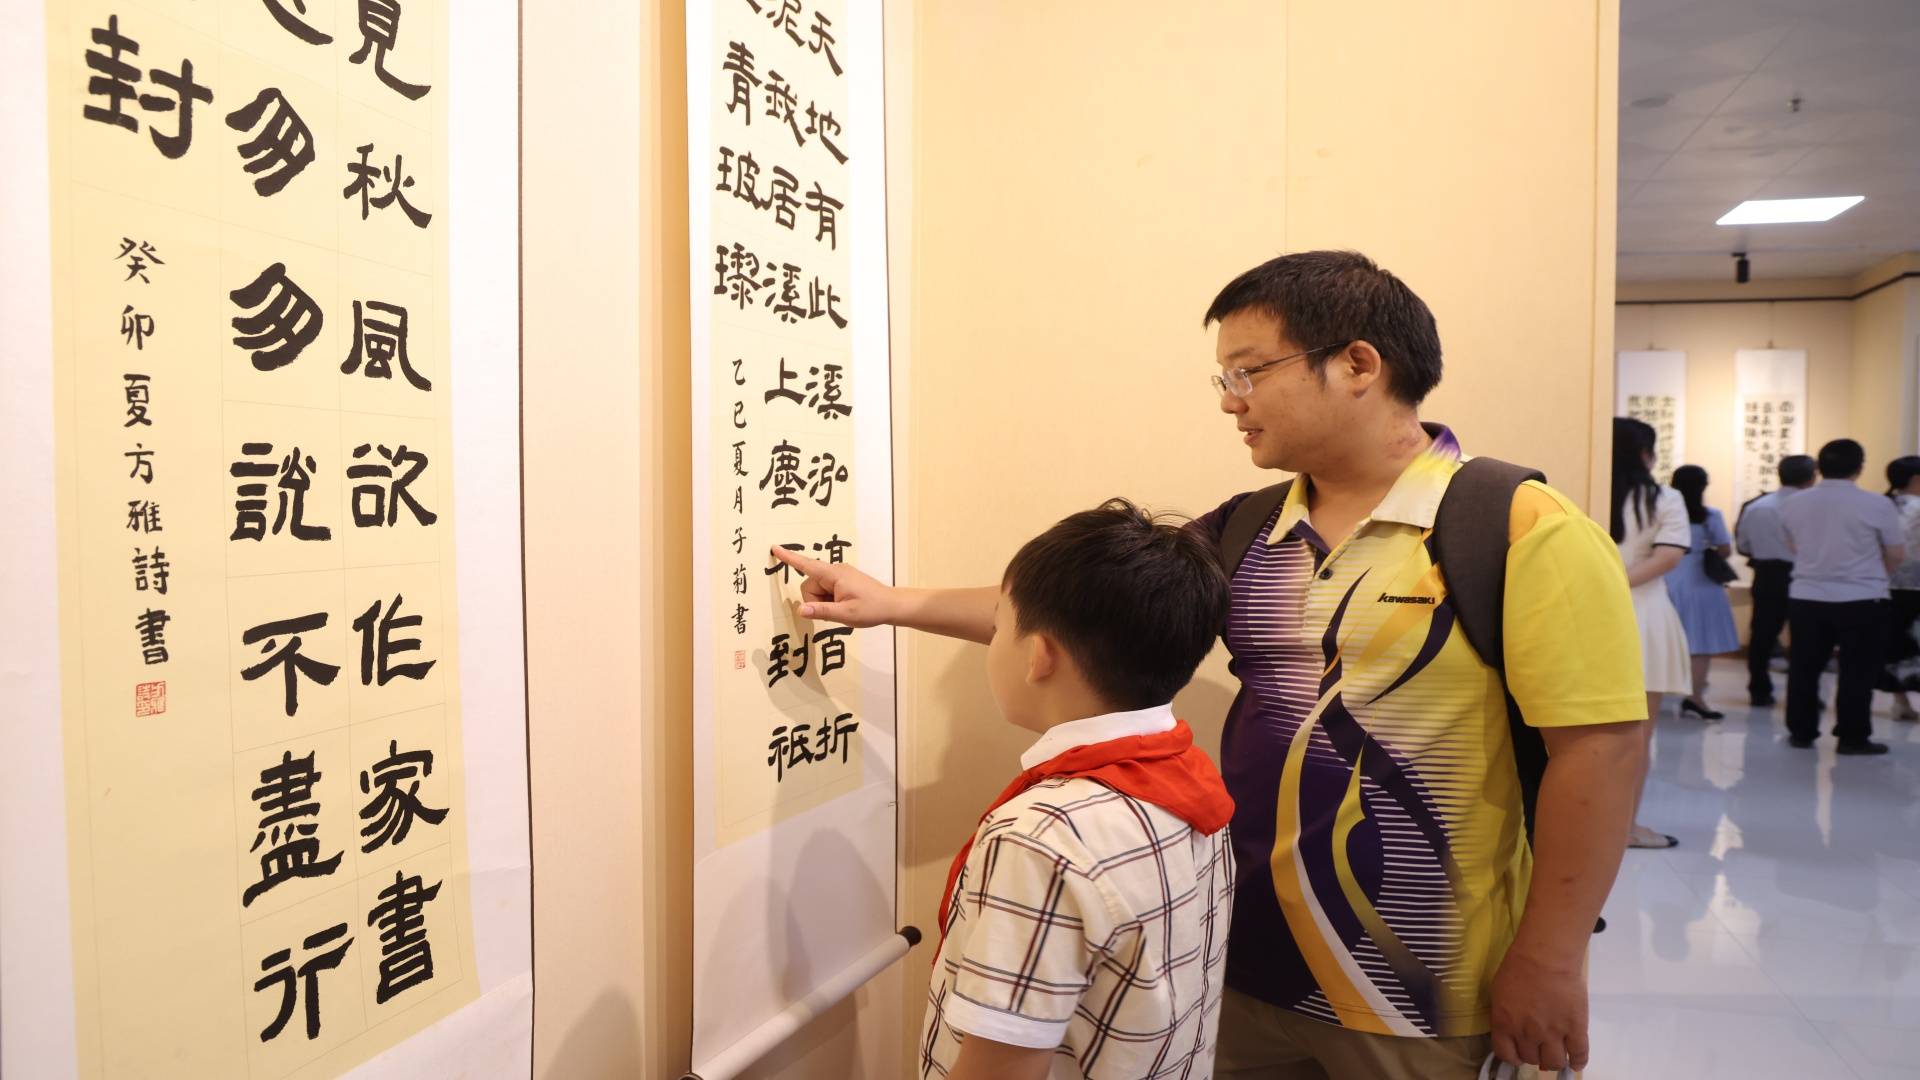 天地有此溪泓百折
泥我居溪上塵不到祇
青玻瓈
乙巳夏月子莉書
見秋風欲作家書
匆匆說不盡行
封
癸卯夏方雅詩書
Kawasaki